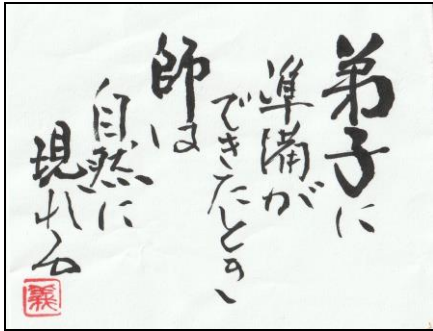 弟子に
準備が
できたとき、
師は
自然に
現れる
義